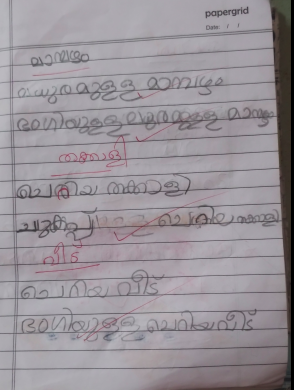 papergrid
Date: / /
മാമ്പഴം
മധുരമുള്ള മാമ്പഴം
ഭംഗിയുള്ള മധുരമുള്ള മാമ്പഴം
തക്കാളി
ചെറിയ തക്കാളി
ചുവപ്പ് ചെറിയ തക്കാളി
വീട്
ചെറിയ വീട്
ഭംഗിയുള്ള ചെറിയ വീട്